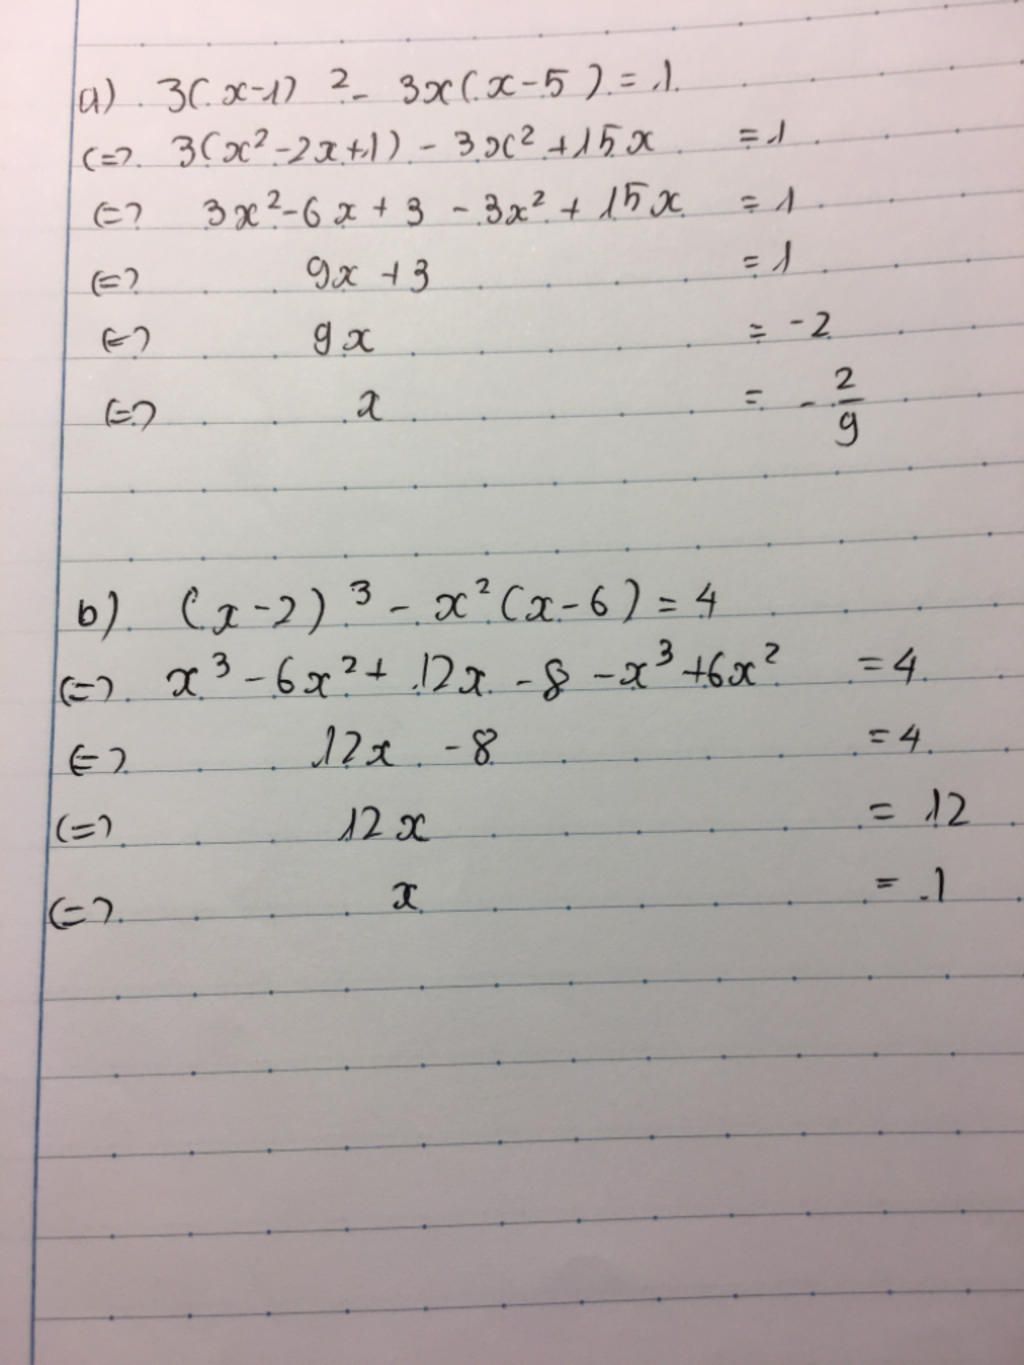 a) 3(x-1)² - 3x(x-5) = 1
<=> 3(x²-2x+1) - 3x² + 15x = 1
<=> 3x²-6x + 3 - 3x² + 15x = 1
<=> 9x + 3 = 1
<=> 9x = -2
<=> x = - 2/9
b) (x-2)³ - x²(x-6) = 4
<=> x³ - 6x² + 12x - 8 - x³ + 6x² = 4
<=> 12x - 8 = 4
<=> 12x = 12
<=> x = 1